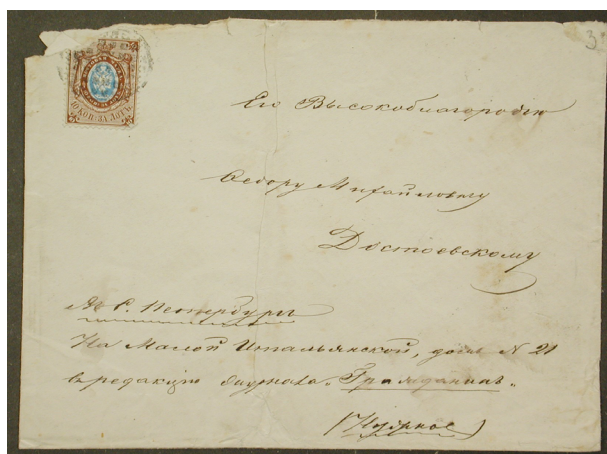 3
10 КОП. ЗА ЛОТЪ
Его Высокоблагородiю
Ѳедору Михайловичу
Достоевскому
С. Петербургъ
На Малой Итальянской, домъ N 21
въ редакцiю журнала „Гражданинъ"
(Нужное)